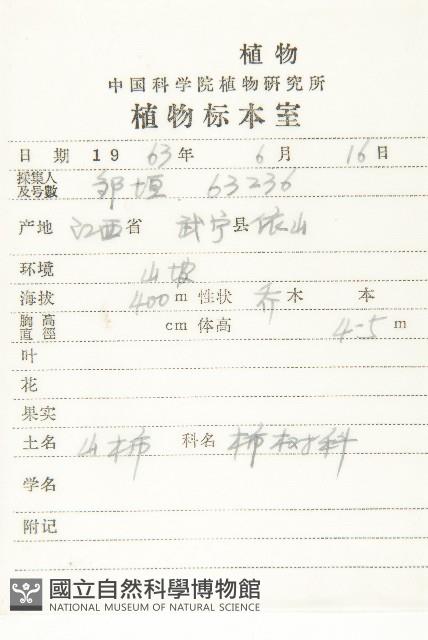 植物
中国科学院植物研究所
植物标本室
日 期 1963年 6月 16日
採集人及号數 邹垣 63236
产地 江西省 武宁县依山
环境 山坡
海拔 400m 性状 乔木 本
胸高直徑 cm 体高 4-5 m
叶
花
果实
土名 山柿 科名 柿树科
学名
附记
國立自然科學博物館
NATIONAL MUSEUM OF NATURAL SCIENCE